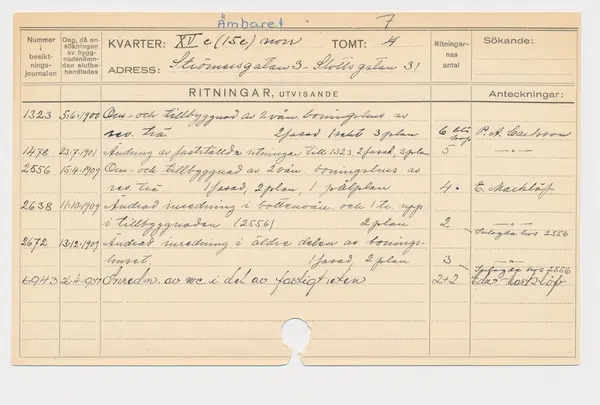 Ämbaret 7
Nummer i besikt-nings-journalen
Dag, då an-sökningen av bygg-nadsnämn-den slutbe-handlades
KVARTER: XV c (15c) norr TOMT: 4
ADRESS: Strömersgatan 3 - Slottsgatan 31
Ritningar-nas antal
Sökande:
RITNINGAR, UTVISANDE
Anteckningar:
1323 5.6.1900 Om- och tillbyggnad av 2 vån. boningshus av
rev. trä 2 fasad 1 sekt 3 plan 6 P. A. Carlsson
1478 23.7.1901 Ändring av fastställda ritningar till 1323. 2 fasad, 3 plan 5 —"—
2556 15.4.1909 Om- och tillbyggnad av 2 vån. boningshus av
rev. trä 1 fasad, 2 plan, 1 pålplan 4. E. Marklöf
2638 11.10.1909 Ändrad inredning i bottenvån. och 1 tr. upp
i tillbyggnaden (2556) 2 plan 2 —"—
Inlagda hos 2556
2672 13.12.1909 Ändrad inredning i äldre delen av bonings-
huset. 1 fasad, 2 plan 3 —"—
Inlagda hos 2556
6943 Inredn. av wc. i del av fastigheten 2+2 Marklöf